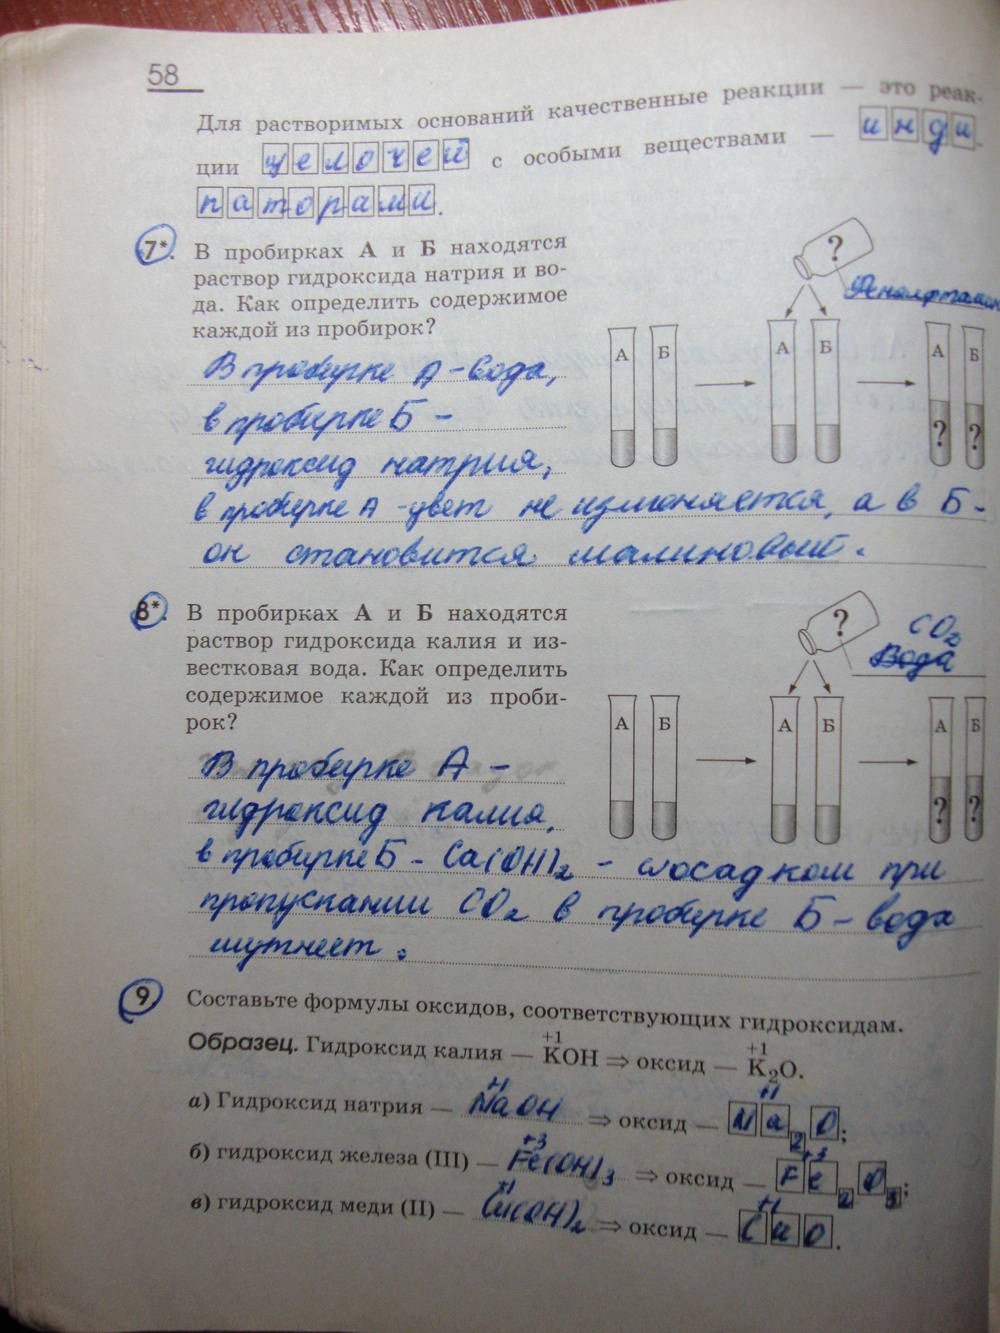 58
Для растворимых оснований качественные реакции — это реак-
ции щелочей с особыми веществами — инди-
каторами.
7*. В пробирках А и Б находятся
раствор гидроксида натрия и во-
да. Как определить содержимое
каждой из пробирок?
?
А Б А Б А Б
? ?
В пробирке А - вода,
в пробирке Б -
гидроксид натрия,
в пробирке А - цвет не изменяется, а в Б -
он становится малиновый.
8*. В пробирках А и Б находятся
раствор гидроксида калия и из-
вестковая вода. Как определить
содержимое каждой из проби-
рок?
?
CO2
Вода
А Б А Б А Б
? ?
В пробирке А -
гидроксид калия,
в пробирке Б - Ca(OH)2 - осадком при
пропускании CO2 в пробирке Б - вода
мутнеет.
9. Составьте формулы оксидов, соответствующих гидроксидам.
Образец. Гидроксид калия — +1 KOH ⇒ оксид — +1 K2O.
а) Гидроксид натрия — +1 NaOH ⇒ оксид — +1 Na2O;
б) гидроксид железа (III) — +3 Fe(OH)3 ⇒ оксид — +3 Fe2O3;
в) гидроксид меди (II) — Cu(OH)2 ⇒ оксид — CuO.